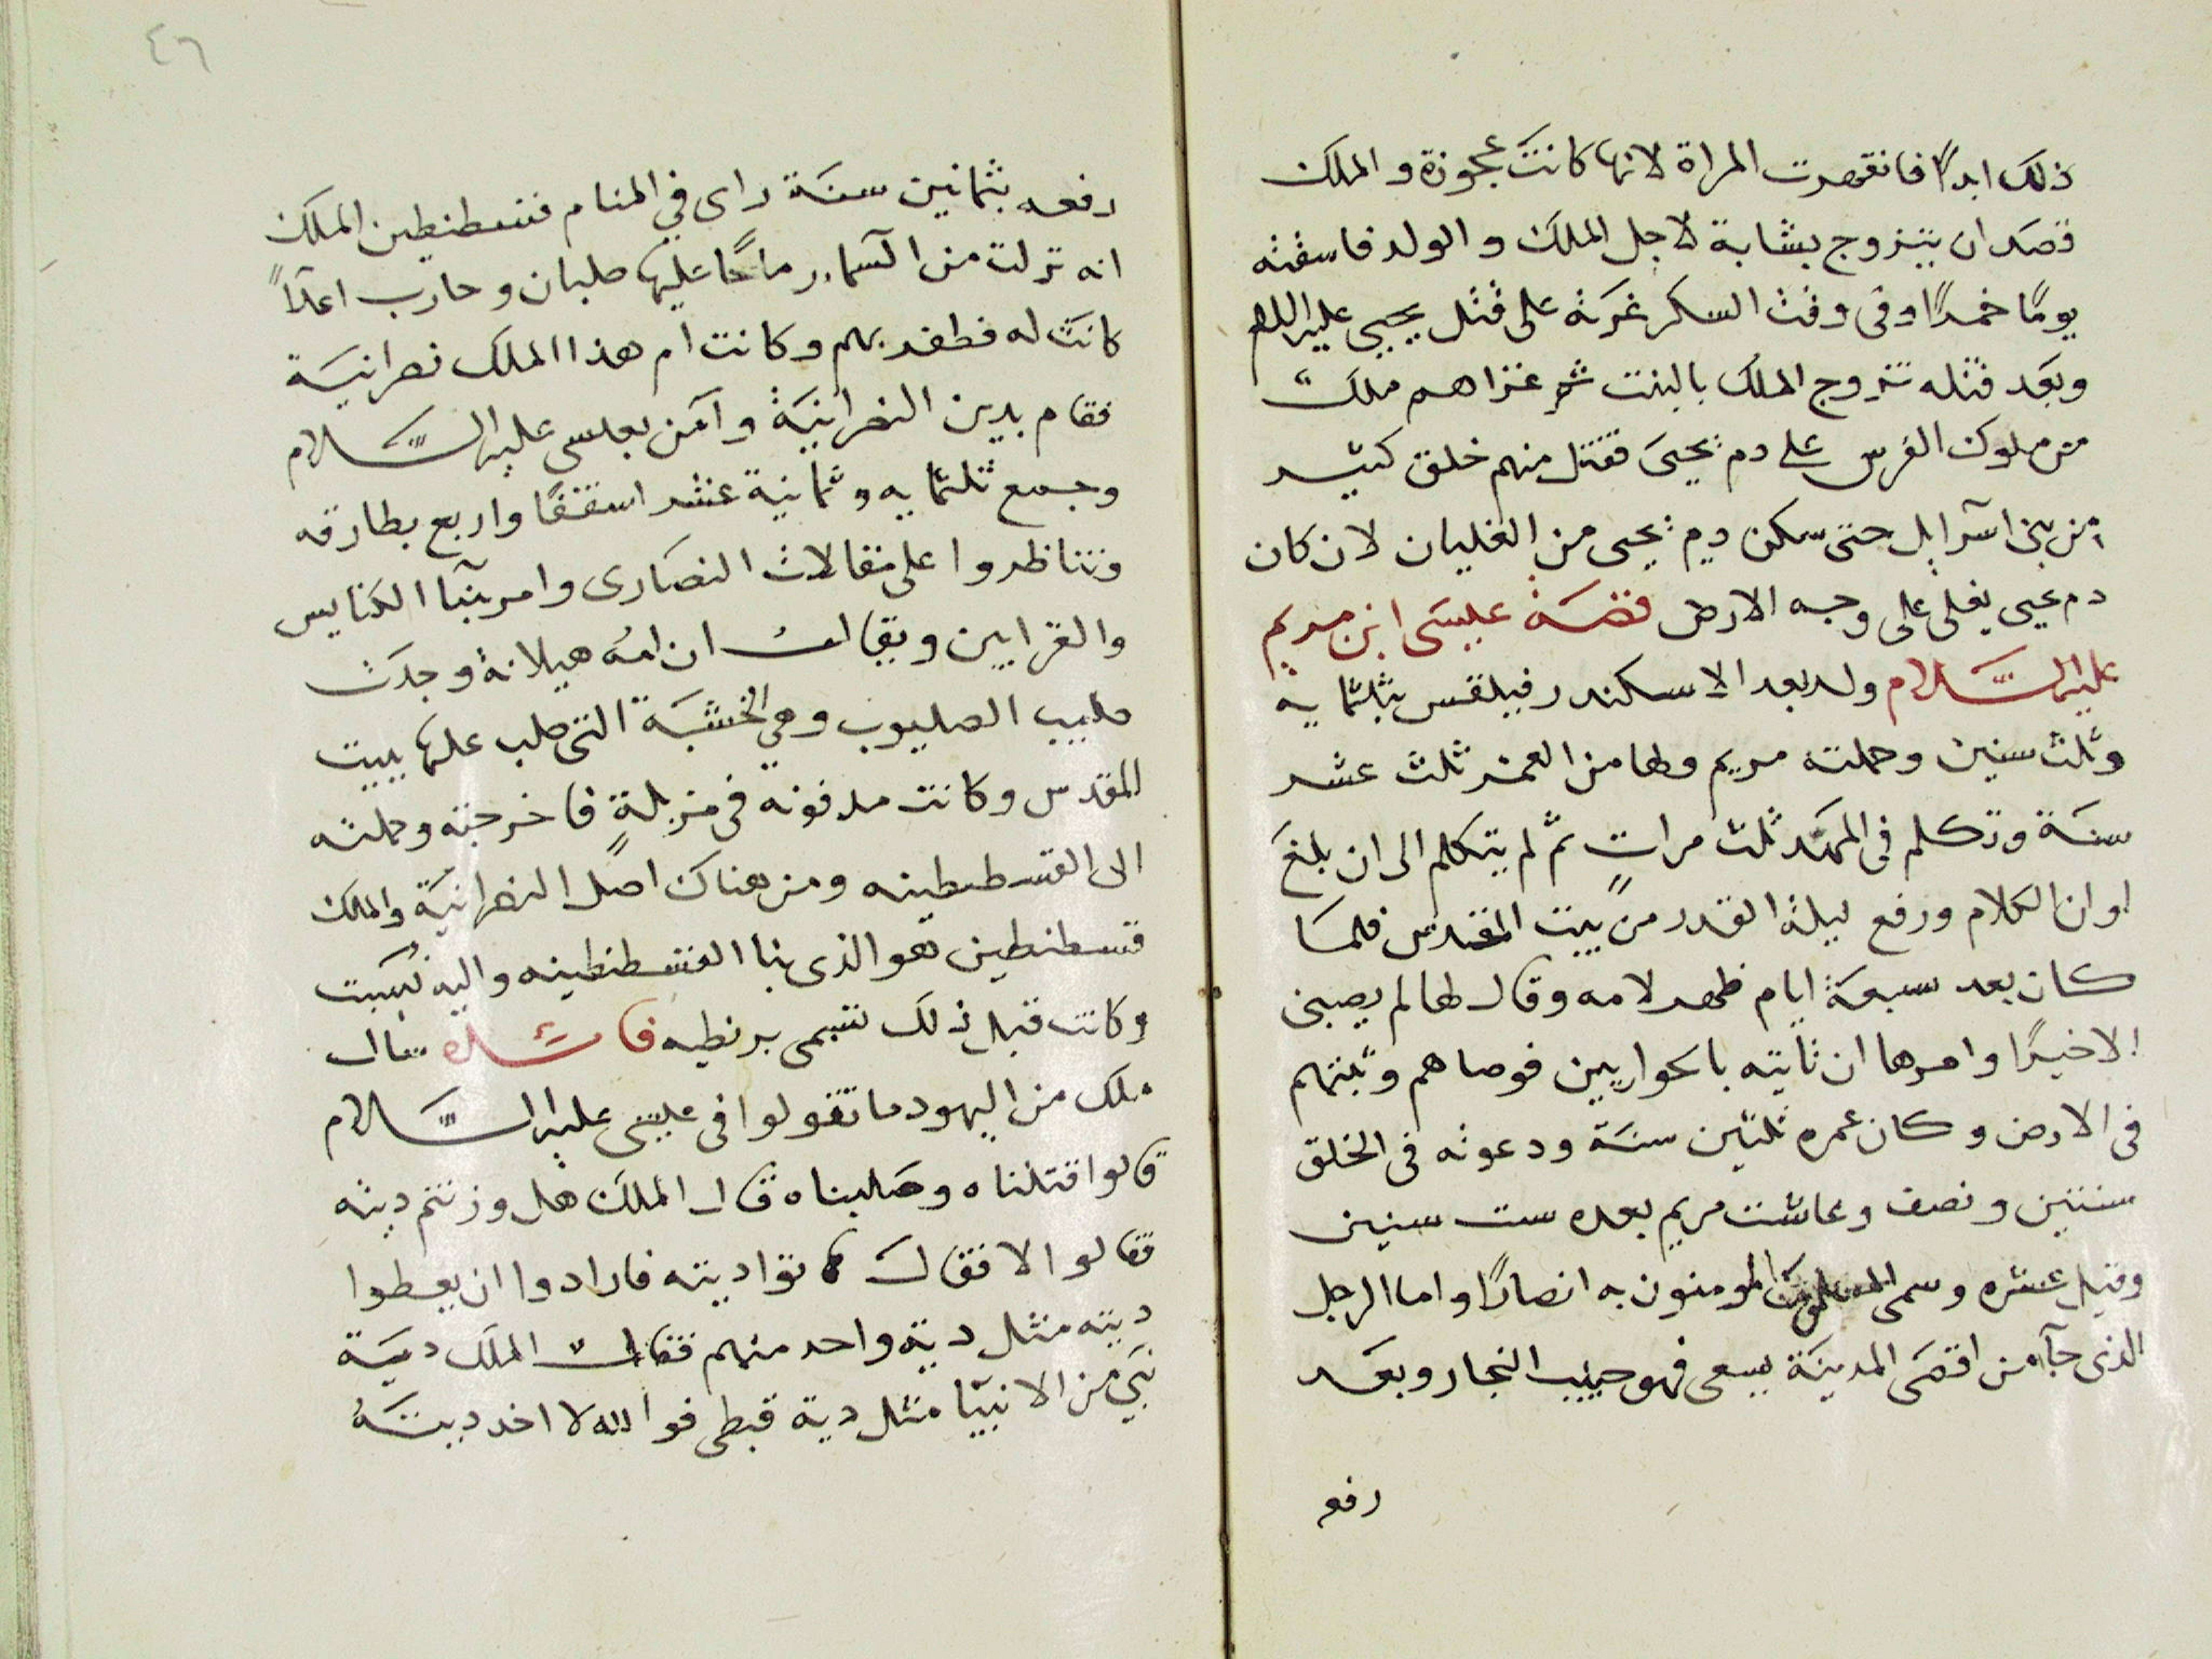 ذلك ابدًا فانقهرت المراة لانها كانت عجوزة والملك
قصد ان يتزوج بشابة لاجل الملك والولد فاسقته
يومًا خمرًا وفى وقت السكر غرته على قتل يحيى عليه السلم
وبعد قتله تزوج الملك بالبنت ثم غزاهم ملك
من ملوك الفرس على دم يحيى فقتل منهم خلق كثير
من بنى اسرايل حتى سكن دم يحيى من الغليان لان كان
دم يحيى يغلى على وجه الارض قصة عيسى ابن مريم
عليه السلام ولد بعد الاسكندر فيلقس بثلثمايه
وثلث سنين وحملته مريم ولها من العمر ثلث عشر
سنة وتكلم فى المهد ثلث مرات ثم لم يتكلم الى ان بلغ
اوان الكلام ورفع ليلة القدر من بيت المقدس فلما
كان بعد سبعة ايام ظهر لامه وقال لها لم يصبنى
الا خيرًا وامرها ان تاتيه بالحواريين فوصاهم وبثهم
فى الارض وكان عمره ثلثين سنة ودعوته فى الخلق
سنتين ونصف وعاشت مريم بعده ست سنين
وقيل عشره وسمى المومنون به انصارًا واما الرجل
الذى جآ من اقصى المدينة يسعى فهو حبيب النجار وبعد
رفع
٤٦
رفعه بثمانين سنة راى في المنام قسطنطين الملك
انه نزلت من السماء رماحًا عليها صلبان وحارب اعدآً
كانت له فظفر بهم وكانت ام هذا الملك نصرانية
فقام بدين النصرانية وآمن بعيسى عليه السلام
وجمع ثلثمايه وثمانية عشر اسقفًا واربع بطارقه
وتناظروا على مقالات النصارى وامر بنآ الكنايس
والقرابين ويقال ان امه هيلانة وجدت
صليب الصلبوب وهي الخشبة التى صلب عليها ببيت
المقدس وكانت مدفونه فى مزبلةٍ فاخرجته وحملته
الى القسطنطينه ومن هناك اصل النصرانية والملك
قسطنطين هو الذى بنا القسطنطينه واليه نسبت
وكانت قبل ذلك تسمى برنطيه فايده قال
ملك من اليهود ما تقولوا فى عيسى عليه السلام
قالوا قتلناه وصلبناه قال الملك هل وزنتم ديته
قالوا لا فقال هاتوا ديته فارادوا ان يعطوا
ديته مثل دية واحد منهم فقال الملك دية
نبي من الانبيآ مثل دية قبطى فوالله لا اخد ديتة